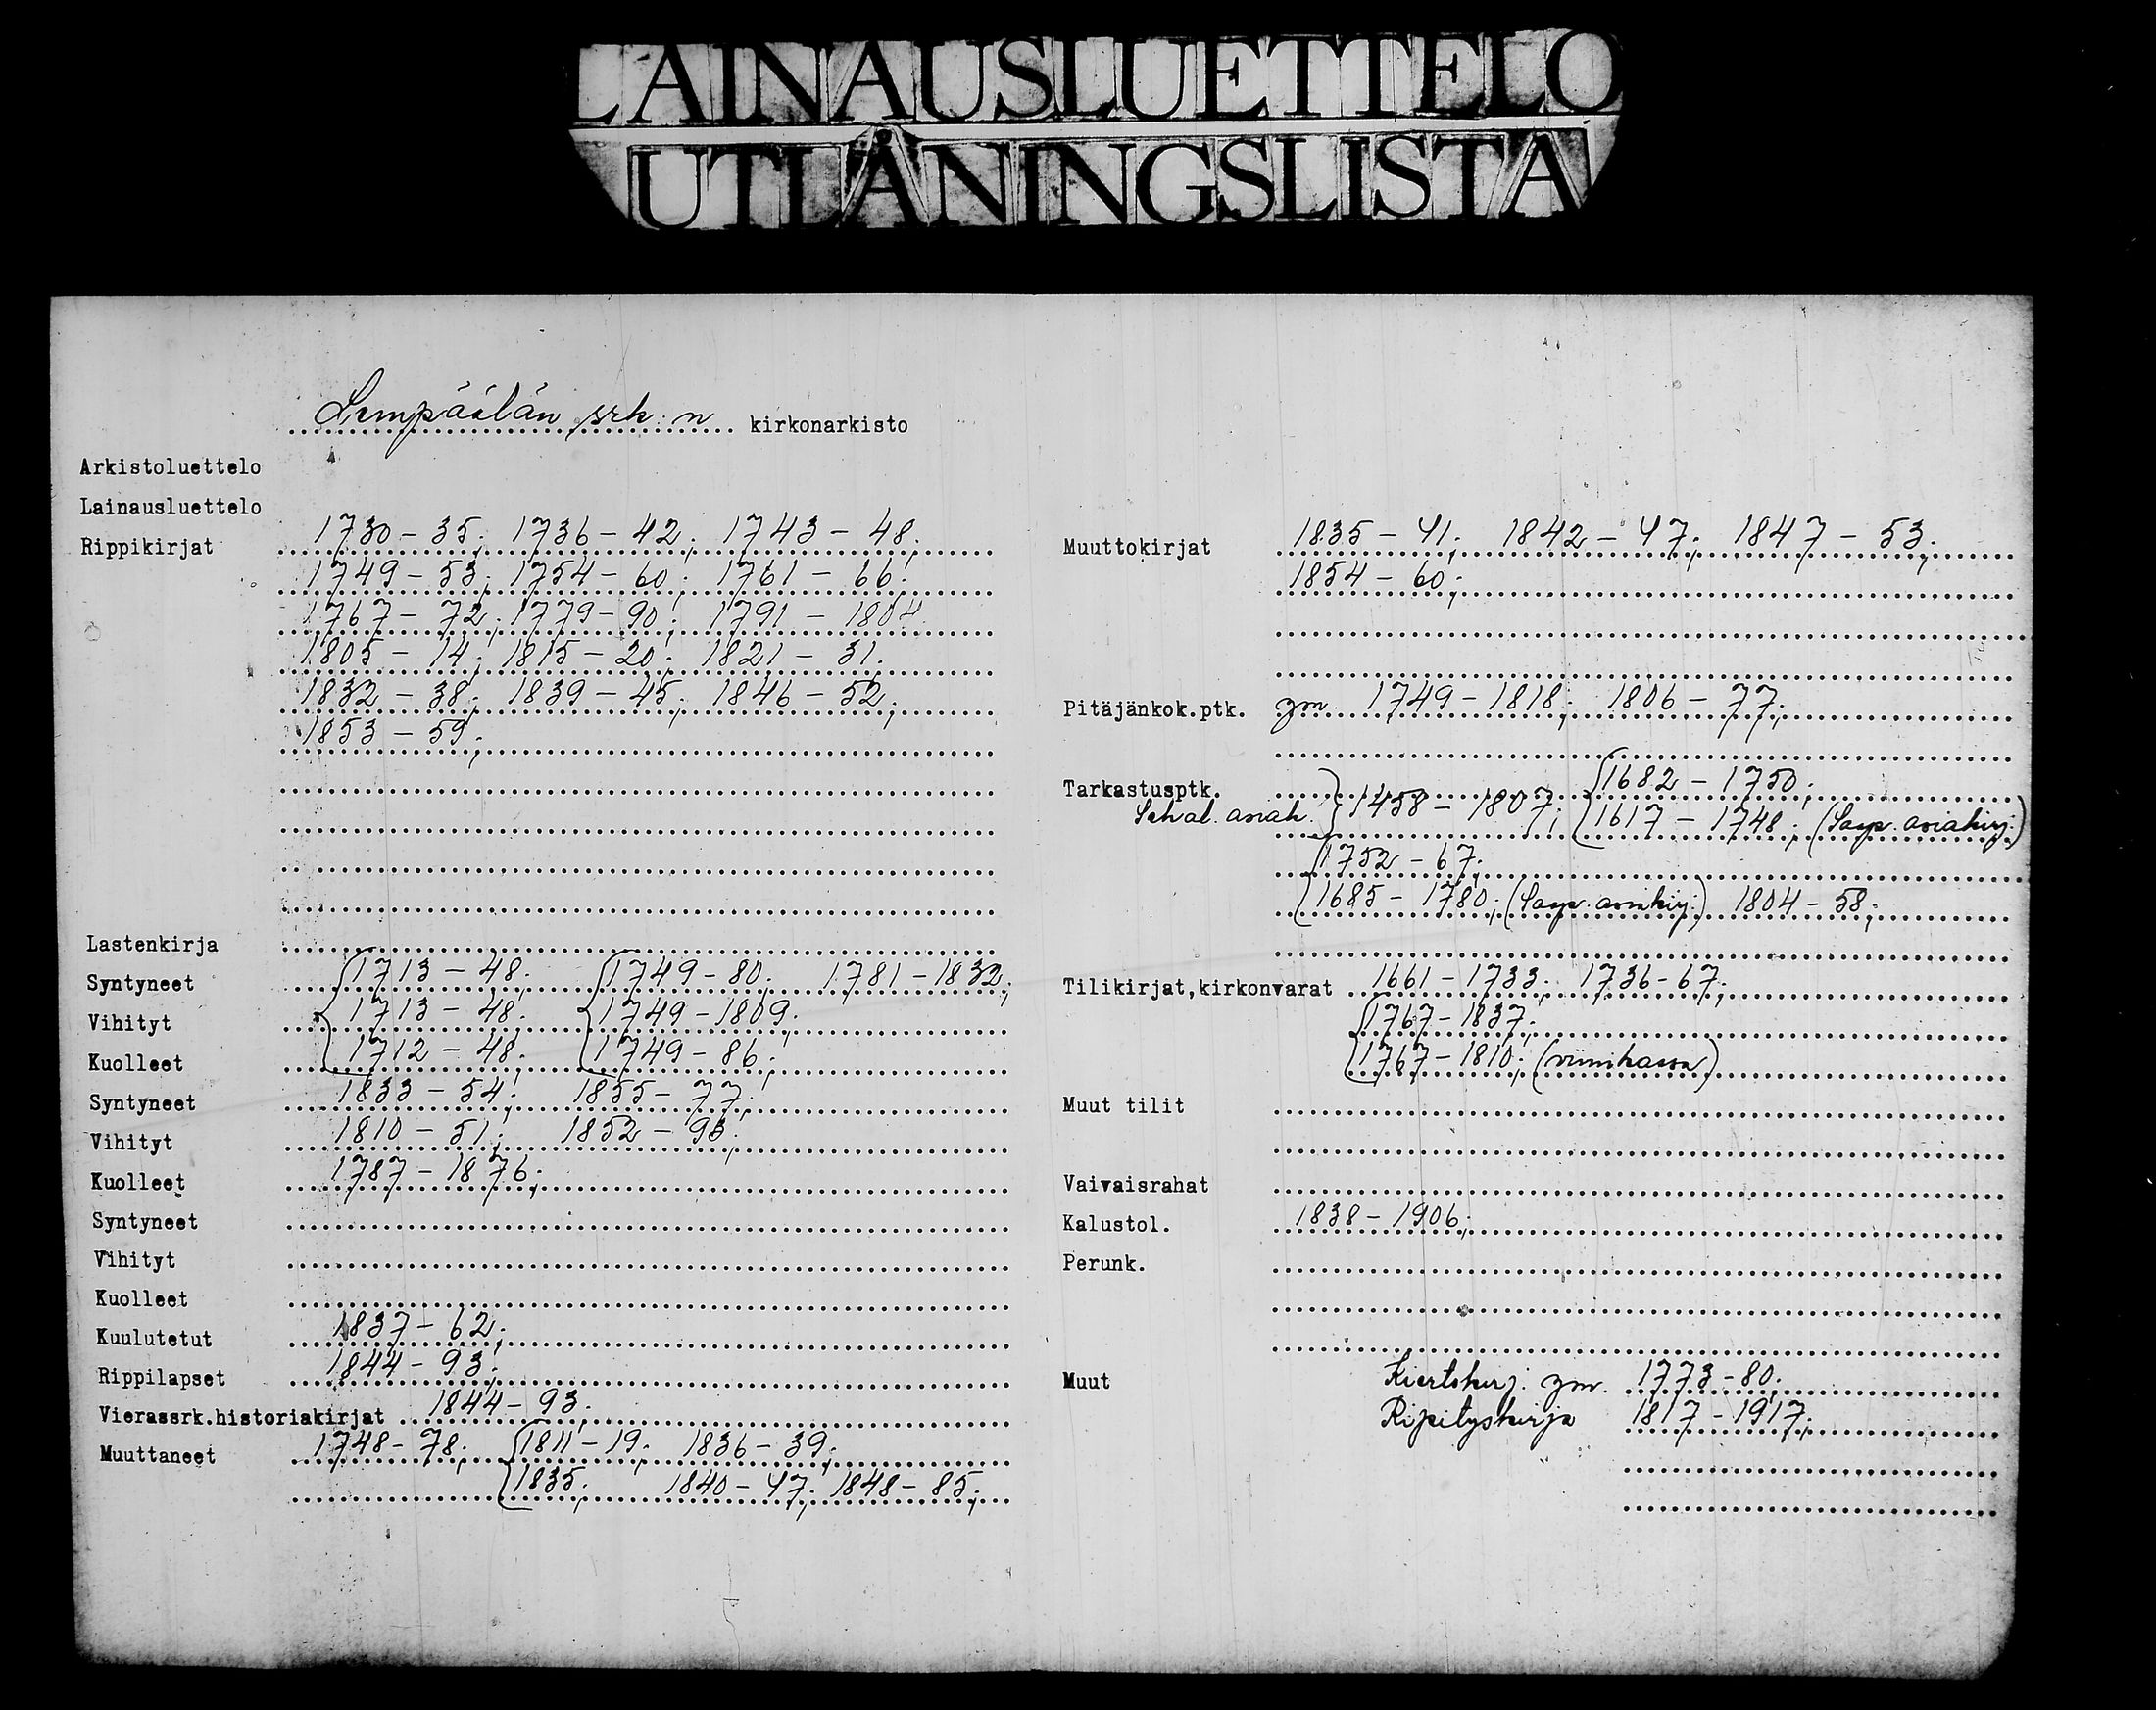 LAINAUSLUETTELO
UTLÅNINGSLISTA
Lempäälän srk:n kirkonarkisto
Arkistoluettelo
Lainausluettelo
Rippikirjat 1730-35; 1736-42; 1743-48;
1749-53; 1754-60; 1761-66;
1767-72; 1779-90; 1791-1804
1805-14; 1815-20; 1821-31;
1832-38; 1839-45; 1846-52;
1853-59;
Lastenkirja
Syntyneet 1713-48; 1749-80; 1781-1832;
Vihityt 1713-48; 1749-1809;
Kuolleet 1712-48; 1749-86;
Syntyneet 1833-54; 1855-77;
Vihityt 1810-51; 1852-93;
Kuolleet 1787-1876;
Syntyneet
Vihityt
Kuolleet
Kuulutetut 1837-62;
Rippilapset 1844-93;
Vierassrk.historiakirjat 1844-93;
Muuttaneet 1748-78; 1811-19; 1836-39;
1835; 1840-47; 1848-85;
Muuttokirjat 1835-41; 1842-47; 1847-53;
1854-60;
Pitäjänkok.ptk. ym. 1749-1818; 1806-77;
Tarkastusptk. 1682-1750;
Sekal. asiak. 1458-1807; 1617-1748; (Saap. asiakirj.)
1752-67;
1685-1780; (Saap. asiakirj.) 1804-58;
Tilikirjat,kirkonvarat 1661-1733; 1736-67;
1767-1837;
1767-1810; (viinikassa)
Muut tilit
Vaivaisrahat
Kalustol. 1838-1906;
Perunk.
Muut Kiertokirj. ym. 1773-80;
Ripityskirja 1817-1917;